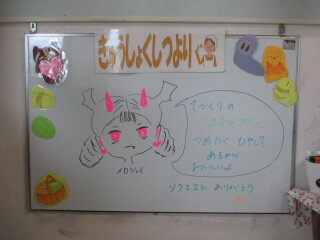 きゅうしょくしつより
てづくりの
つめたく ひやして
あるから
おいしいよ
メロジョイ
リクエスト ありがとう